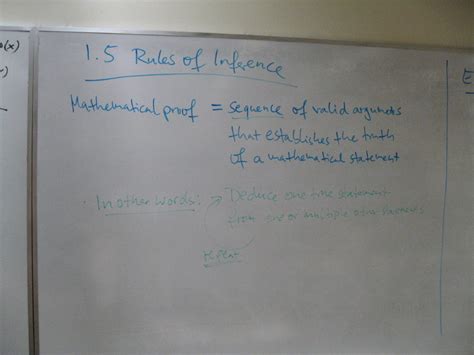 1.5 Rules of Inference
Mathematical proof = sequence of valid arguments
that establishes the truth
of a mathematical statement
In other words: → Deduce one true statement
from one or multiple other
repeat